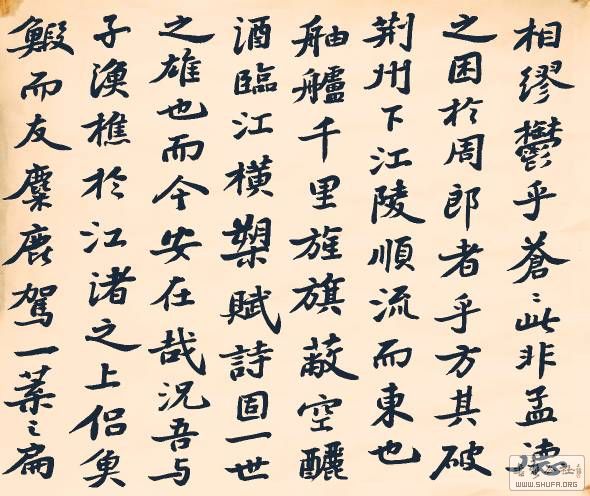 相繆鬱乎蒼〻此非孟德
之困於周郎者乎方其破
荆州下江陵順流而東也
舳艫千里旌旗蔽空釃
酒臨江橫槊賦詩固一世
之雄也而今安在哉況吾與
子漁樵於江渚之上侶魚
鰕而友麋鹿駕一葉之扁
WWW.SHUFA.ORG